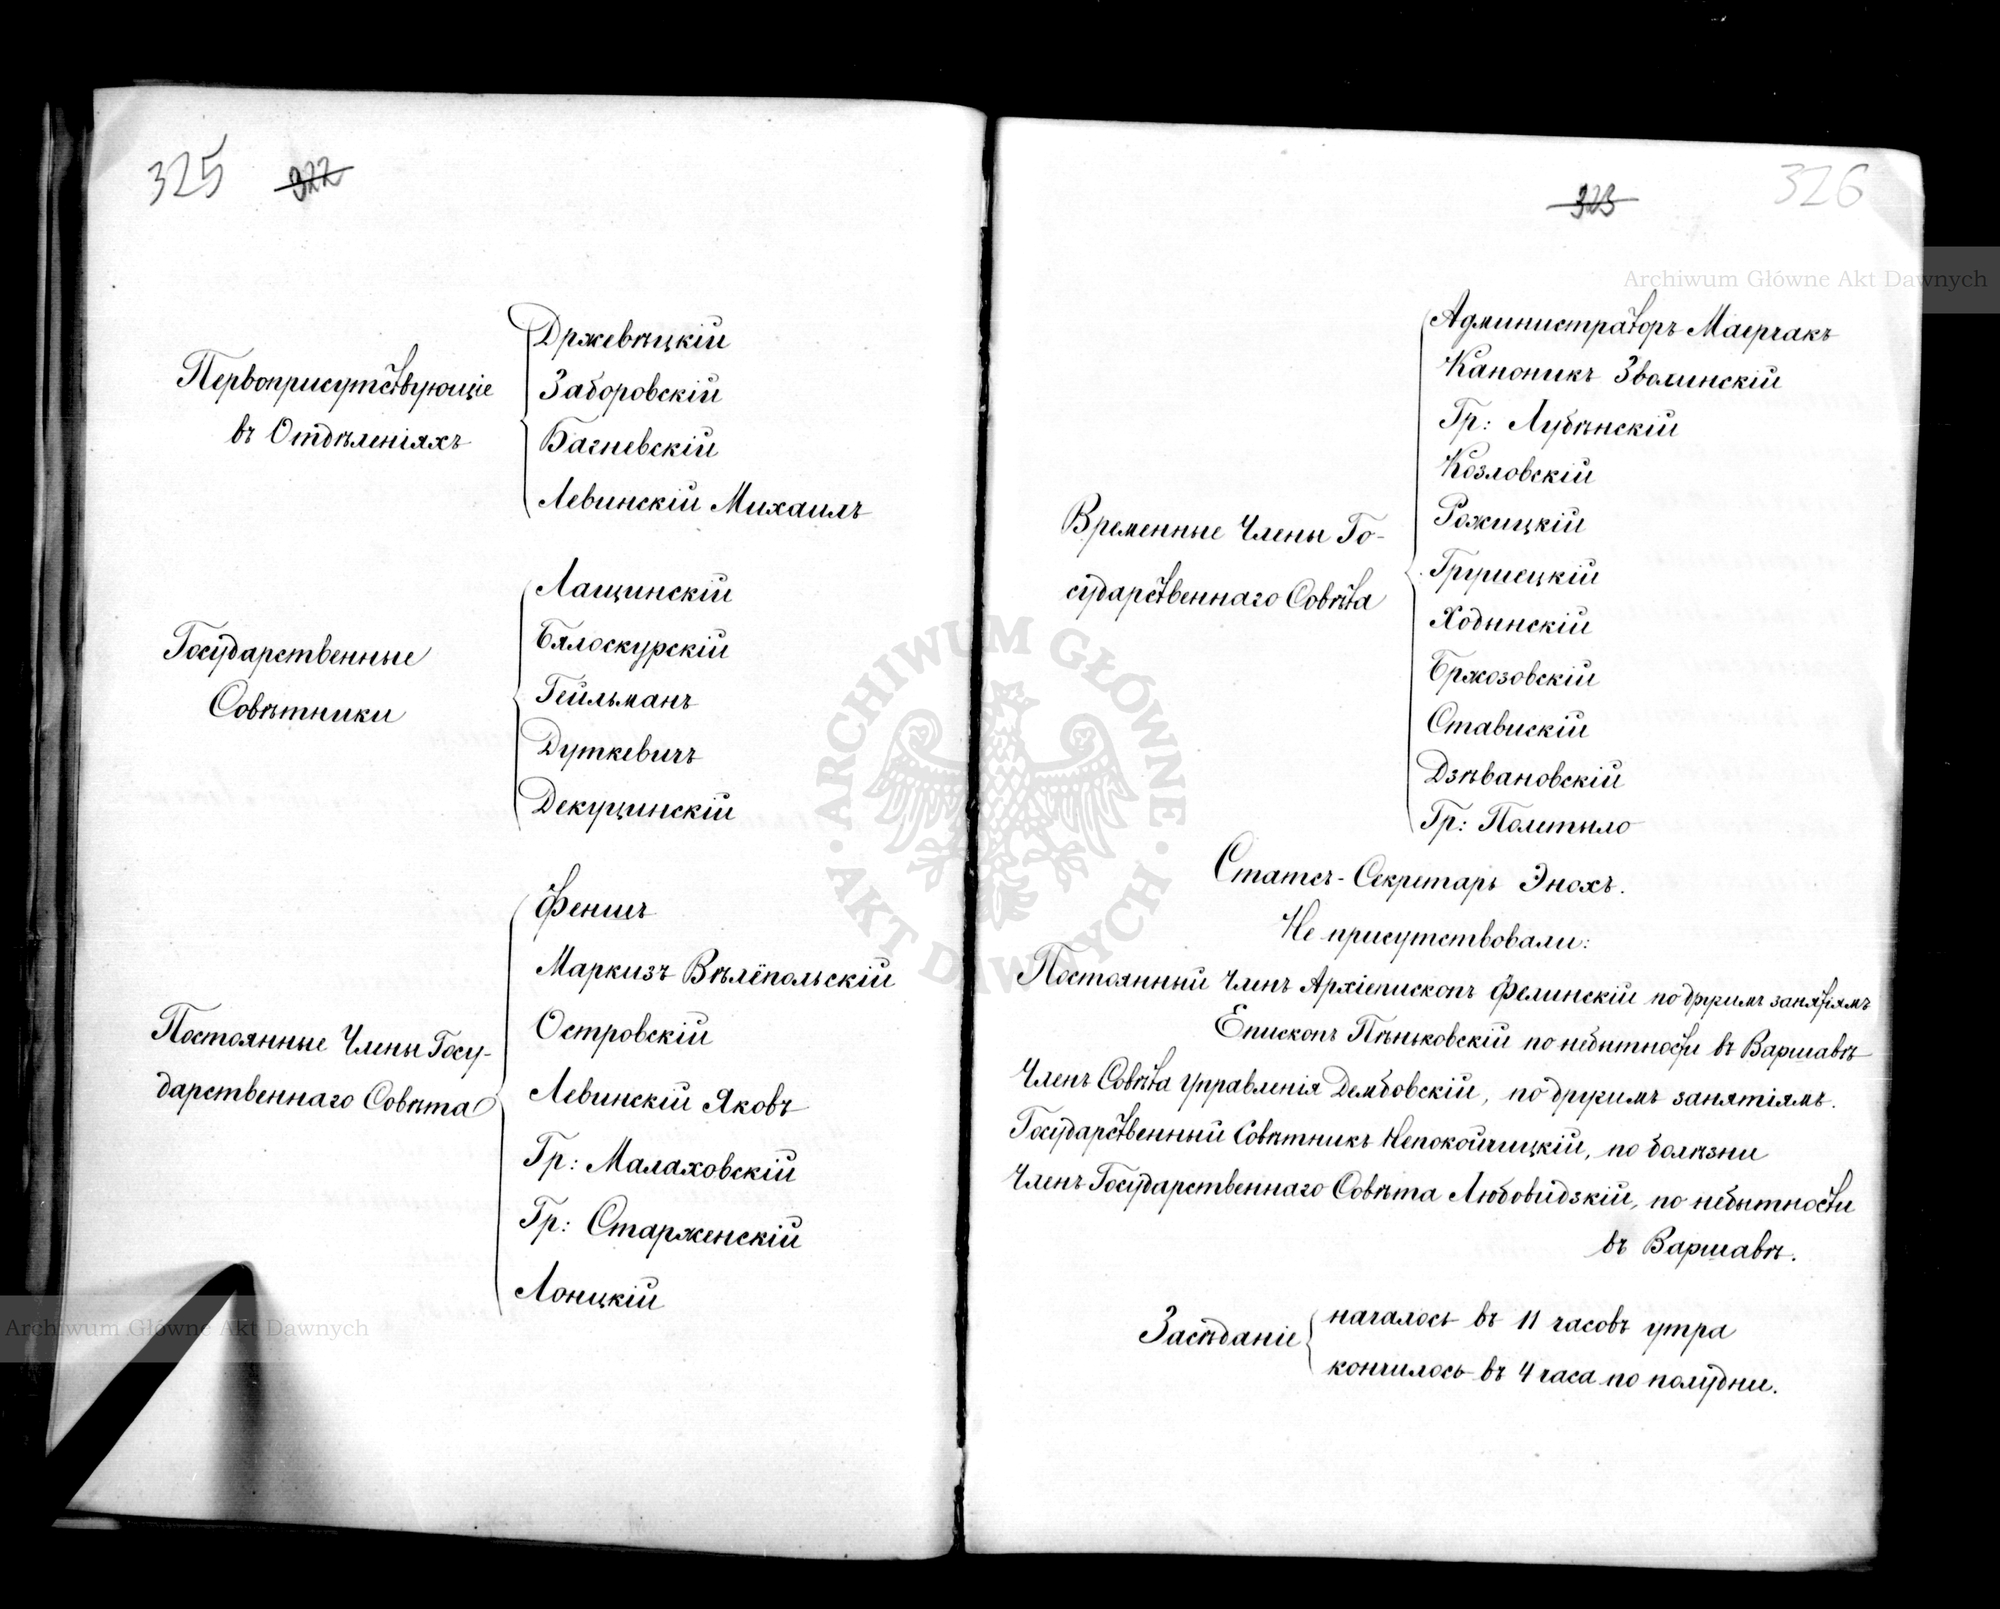 325 322
Первоприсутствующіе
въ Отдѣленіяхъ
Држевѣцкій
Заборовскій
Багневскій
Левинскій Михаилъ
Государственные
Совѣтники
Лащинскій
Бялоскурскій
Гейльманъ
Дуткевичъ
Декуцинскій
Постоянные Члены Госу-
дарственнаго Совѣта
Феншъ
Маркизъ Вѣлёпольскій
Островскій
Левинскій Яковъ
Гр: Малаховскій
Гр: Старженскій
Лонцкій
Archiwum Główne Akt Dawnych
323 326
Archiwum Główne Akt Dawnych
Временные Члены Го-
сударственнаго Совѣта
Администраторъ Маерчакъ
Каноникъ Зволинскій
Гр: Лубѣнскій
Козловскій
Рожицкій
Грушецкій
Ходынскій
Бржозовскій
Ставискій
Дзѣвановскій
Гр: Полетыло
Статсъ-Секретарь Энохъ.
Не присутствовали:
Постоянный Членъ Архіепископъ Фелинскій по другимъ занятіямъ
Епископъ Пѣньковскій по небытности въ Варшавѣ
Членъ Совѣта Управленія Дембовскій, по другимъ занятіямъ.
Государственный Совѣтникъ Непокойчицкій, по болѣзни
Членъ Государственнаго Совѣта Любовидзкій, по небытности
въ Варшавѣ.
Засѣданіе
началось въ 11 часовъ утра
кончилось въ 4 часа по полудни.
ARCHIWUM GŁÓWNE
AKT DAWNYCH